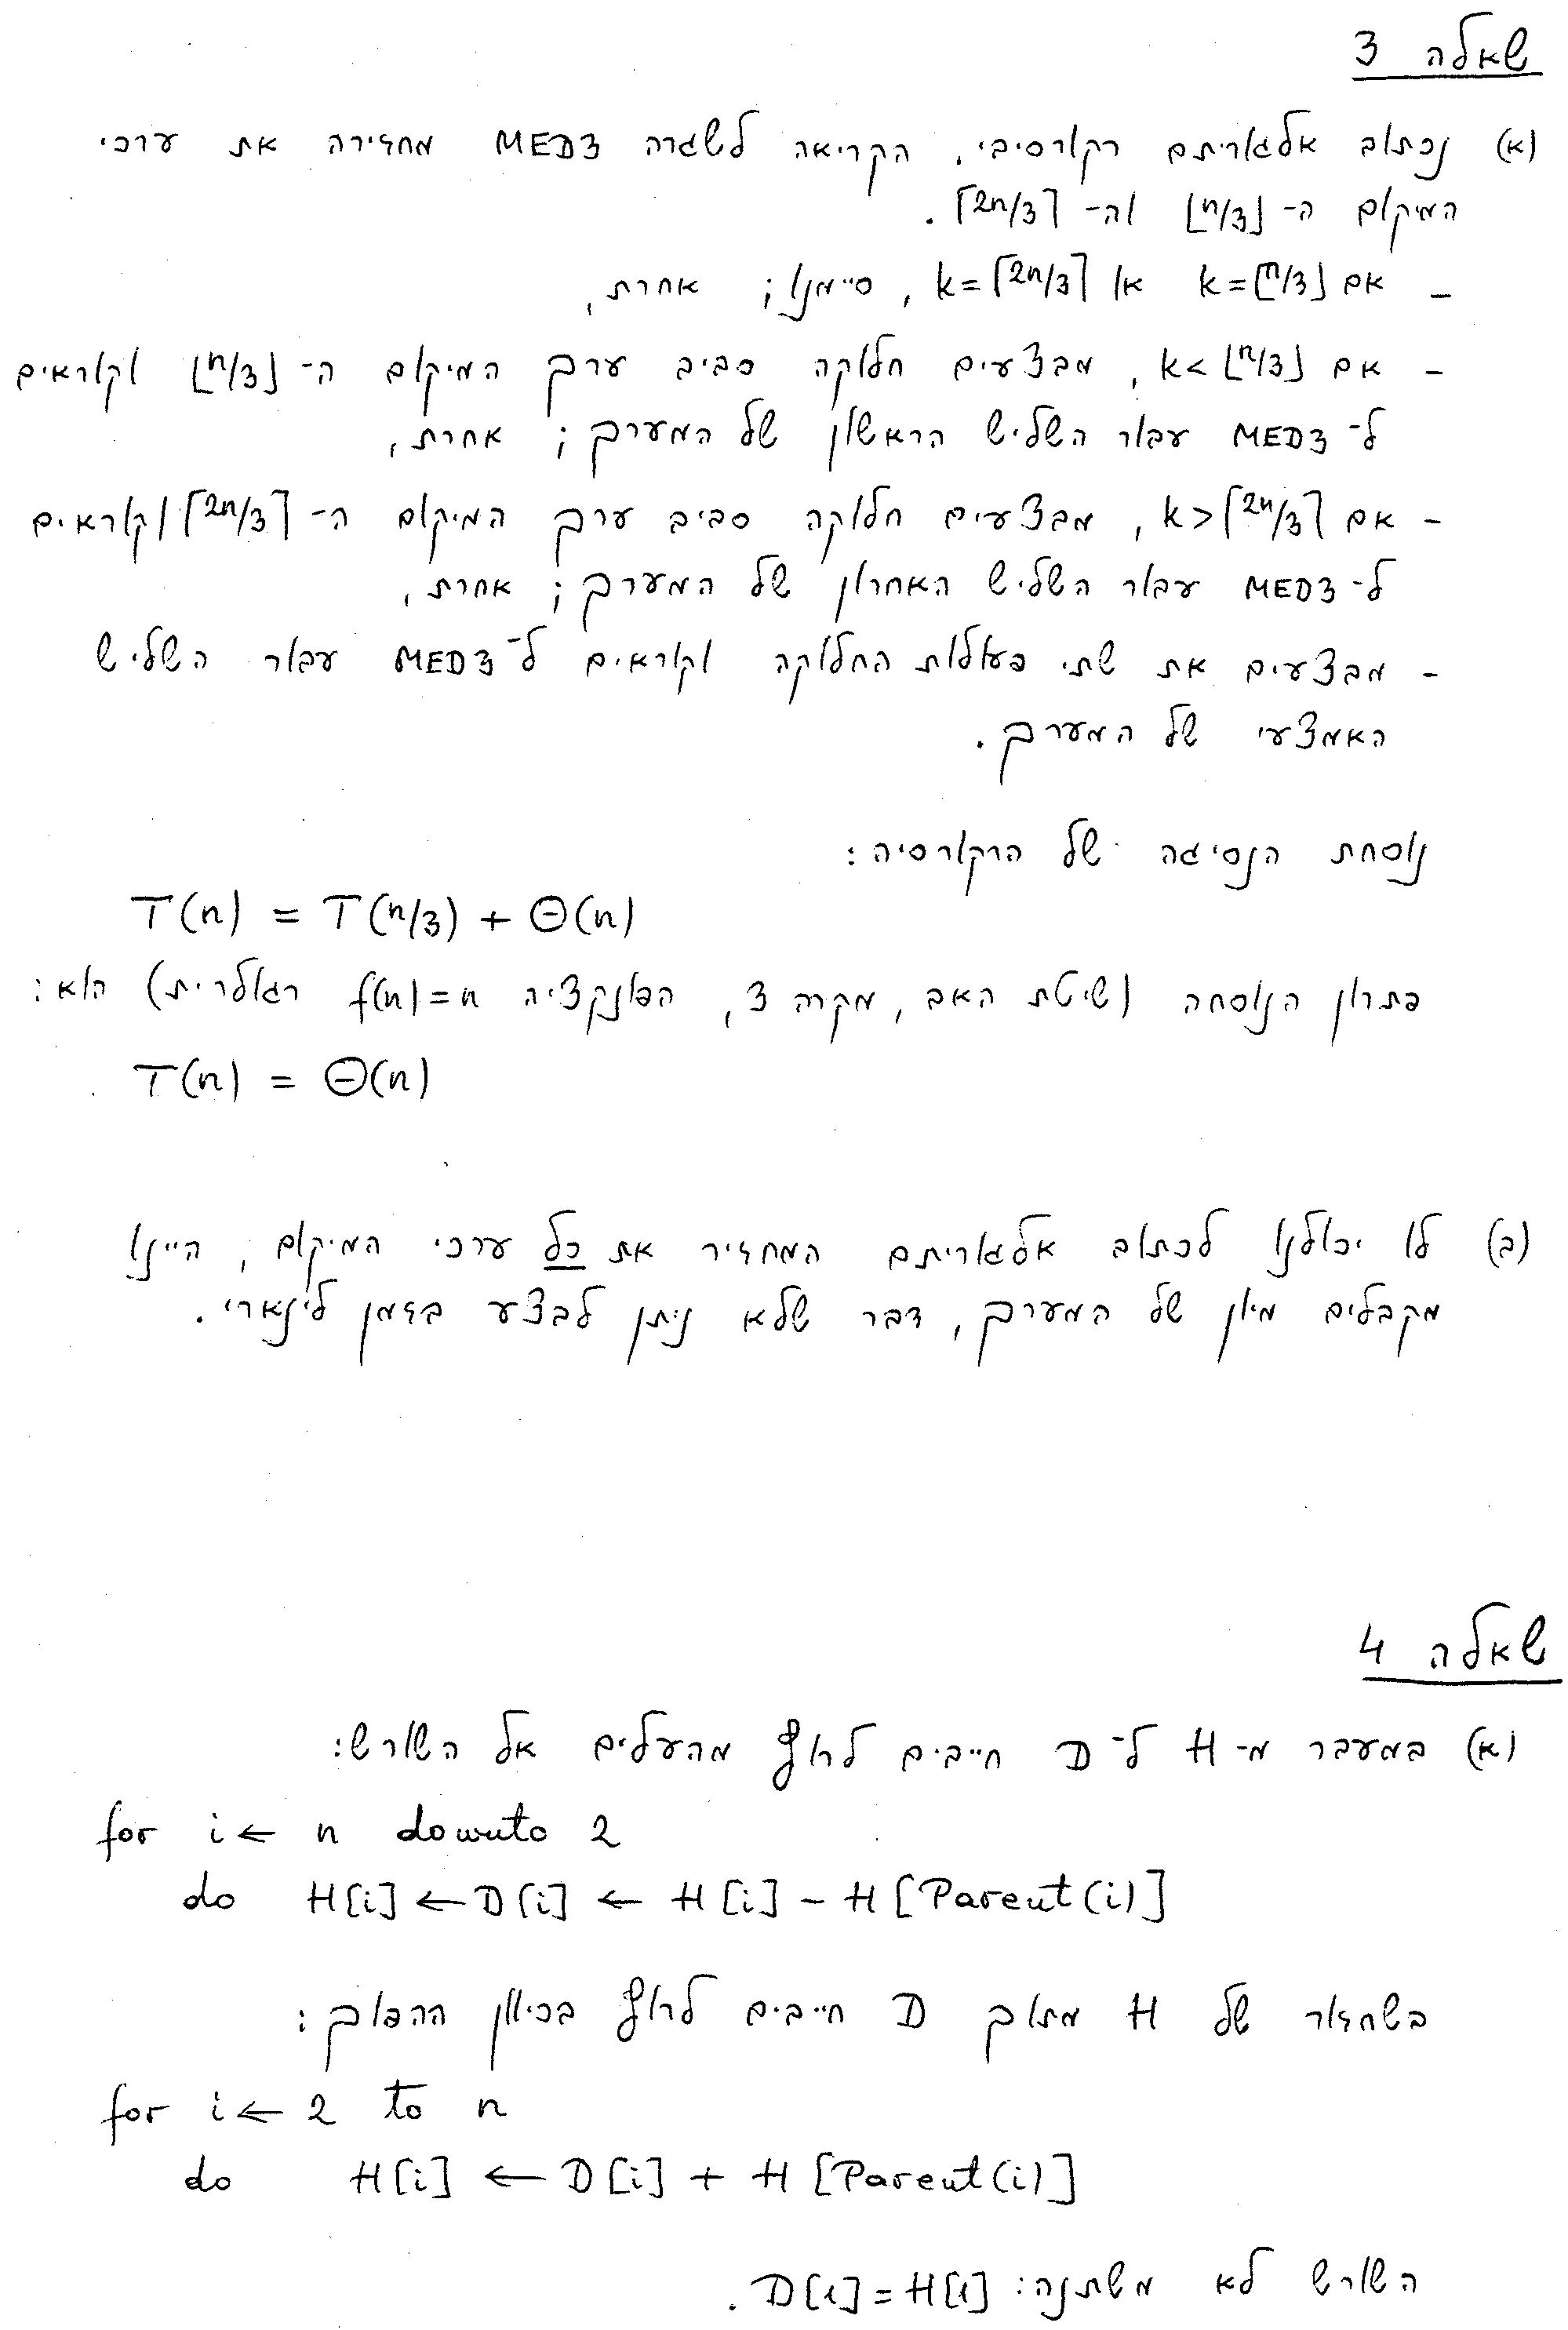 שאלה 3
(א) נכתוב אלגוריתם רקורסיבי. הקריאה לשגרה MED3 מחזירה את ערכי
המיקום ה-⌊n/3⌋ וה-⌈2n/3⌉.
- אם k=⌊n/3⌋ או k=⌈2n/3⌉, סיימנו; אחרת,
- אם k<⌊n/3⌋, מבצעים חלוקה סביב ערך המיקום ה-⌊n/3⌋ וקוראים
ל-MED3 עבור השליש הראשון של המערך; אחרת,
- אם k>⌈2n/3⌉, מבצעים חלוקה סביב ערך המיקום ה-⌈2n/3⌉ וקוראים
ל-MED3 עבור השליש האחרון של המערך; אחרת,
- מבצעים את שתי פעולות החלוקה וקוראים ל-MED3 עבור השליש
האמצעי של המערך.
נוסחת הנסיגה של הרקורסיה:
T(n) = T(n/3) + Θ(n)
פתרון הנוסחה (שיטת האב, מקרה 3, הפונקציה f(n)=n רגולרית) הוא:
T(n) = Θ(n)
(ב) לו יכולנו לכתוב אלגוריתם המחזיר את כל ערכי המיקום, היינו
מקבלים מיון של המערך, דבר שלא ניתן לבצע בזמן לינארי.
שאלה 4
(א) במעבר מ-H ל-D חייבים לרוץ מהעלים אל השורש:
for i ← n downto 2
do H[i] ← D[i] ← H[i] - H[Parent(i)]
בשחזור של H מתוך D חייבים לרוץ בכיוון ההפוך:
for i ← 2 to n
do H[i] ← D[i] + H[Parent(i)]
השורש לא משתנה: D[1]=H[1].